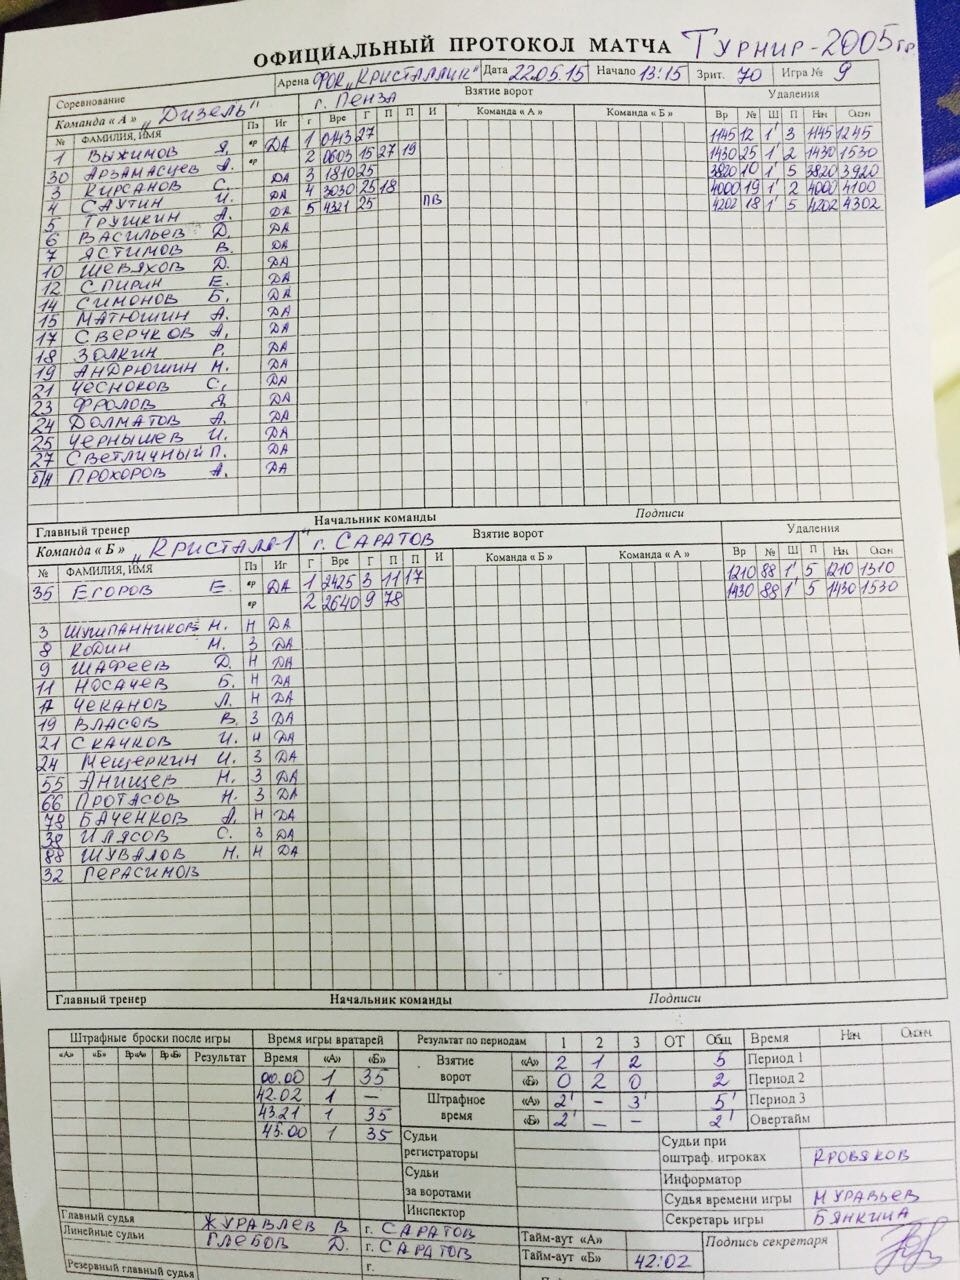 ОФИЦИАЛЬНЫЙ ПРОТОКОЛ МАТЧА ТУРНИР-2005 гр
Соревнование Арена ФОК „КРИСТАЛЛИК" Дата 22.05.15 Начало 13:15 Зрит. 70 Игра № 9
Команда « А » „ДИЗЕЛЬ" г. ПЕНЗА Взятие ворот Удаления
№ ФАМИЛИЯ, ИМЯ Пз Иг Г Вре Г П П И Команда « А » Команда « Б » Вр № Ш П Нач Окон
1 ВЫЖИМОВ Я. вр ДА 1 0143 27 1145 12 1' 3 1145 1245
30 АРЗАМАСЦЕВ А. вр 2 0603 15 27 19 1430 25 1' 2 1430 1530
3 КИРСАНОВ С. ДА 3 1810 25 3820 10 1' 5 3820 3920
4 САУТИН И. ДА 4 3030 25 18 4000 19 1' 2 4000 4100
5 ТРУШКИН А. ДА 5 4321 25 ПВ 4202 18 1' 5 4202 4302
6 ВАСИЛЬЕВ Д. ДА
7 ЯСТИМОВ В. ДА
10 ШЕВЯХОВ Д. ДА
12 СПИРИН Е. ДА
14 СИМОНОВ Б. ДА
15 МАТЮШИН А. ДА
17 СВЕРЧКОВ А. ДА
18 ЗОЛКИН Р. ДА
19 АНДРЮШИН М. ДА
21 ЧЕСНОКОВ С. ДА
23 ФРОЛОВ Я. ДА
24 ДОЛМАТОВ А. ДА
25 ЧЕРНЫШЕВ И. ДА
27 СВЕТЛИЧНЫЙ П. ДА
б/н ПРОХОРОВ А. ДА
Главный тренер Начальник команды Подписи
Команда « Б » „КРИСТАЛЛ-1" г. САРАТОВ Взятие ворот Удаления
№ ФАМИЛИЯ, ИМЯ Пз Иг Г Вре Г П П И Команда « Б » Команда « А » Вр № Ш П Нач Окон
35 ЕГОРОВ Е. вр ДА 1 2425 3 11 17 1210 88 1' 5 1210 1310
вр 2 2640 9 78 1430 88 1' 5 1430 1530
3 ШУШПАННИКОВ М. Н ДА
8 КОДИН М. З ДА
9 ШАФЕЕВ Д. Н ДА
11 НОСАЧЕВ Б. Н ДА
17 ЧЕКАНОВ Л. Н ДА
19 ВЛАСОВ В. З ДА
21 СКАЧКОВ И. Н ДА
24 МЕЩЕРКИН И. З ДА
55 АНИЩЕВ Н. З ДА
66 ПРОТАСОВ Н. З ДА
78 БАЧЕНКОВ А. Н ДА
38 ИЛЯСОВ С. З ДА
88 ШУВАЛОВ Н. Н ДА
32 ГЕРАСИМОВ
Главный тренер Начальник команды Подписи
Штрафные броски после игры Время игры вратарей Результат по периодам 1 2 3 ОТ Общ Время Нач Оконч.
«А» «Б» Вр«А» Вр«Б» Результат Время «А» «Б» Взятие ворот «А» 2 1 2 5 Период 1
00.00 1 35 «Б» 0 2 0 2 Период 2
42.02 1 – Штрафное время «А» 2' – 3' 5' Период 3
43.21 1 35 «Б» 2' – – 2' Овертайм
45.00 1 35 Судьи регистраторы Судьи при оштраф. игроках
Судьи за воротами Информатор
Судья времени игры МУРАВЬЕВ
Инспектор Секретарь игры БЯНКИНА
Главный судья ЖУРАВЛЕВ В г. САРАТОВ
Линейные судьи ГЛЕБОВ Д. г. САРАТОВ Тайм-аут «А» Подпись секретаря
Резервный главный судья г. Тайм-аут «Б» 42:02